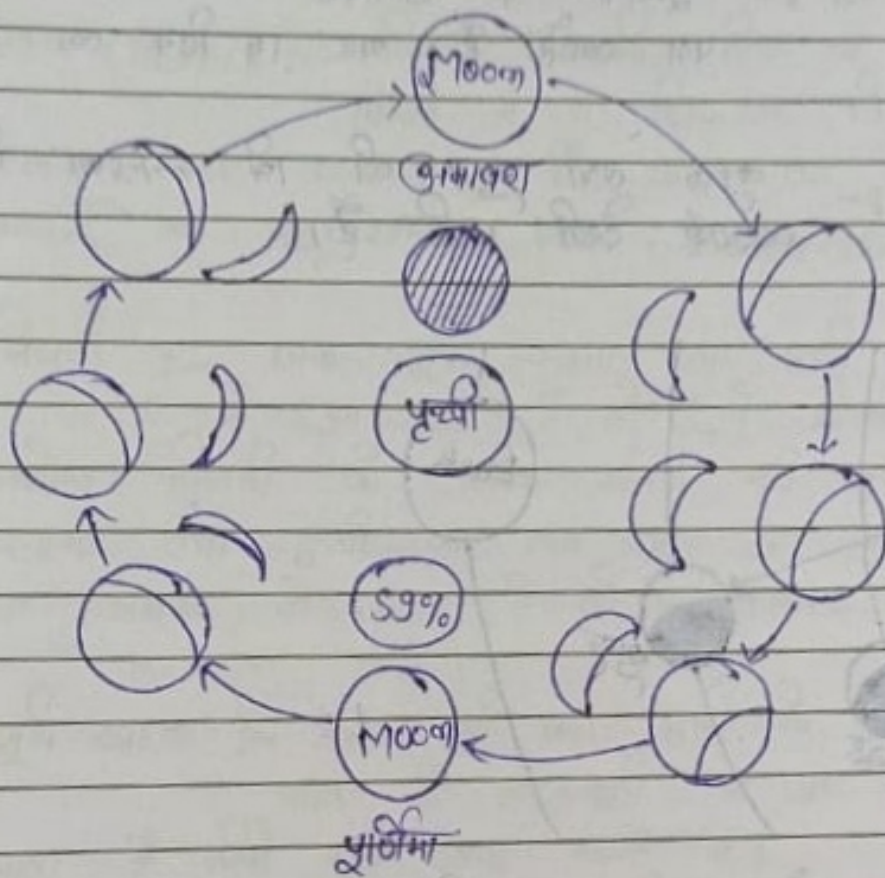 Moon
अमावश
पृथ्वी
59%
Moon
पूर्णिमा